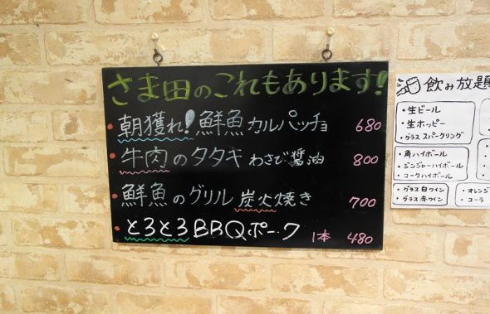 さま田のこれもあります!
・朝獲れ!鮮魚カルパッチョ 680
・牛肉のタタキ わさび醤油 800
・鮮魚のグリル 炭火焼き 700
・とろとろBBQポーク 1本 480
飲み放題
・生ビール
・生ホッピー
・グラススパークリング
・角ハイボール
・ジンジャーハイボール
・コークハイボール
・グラス白ワイン
・グラス赤ワイン
・オレンジ
・コーラ